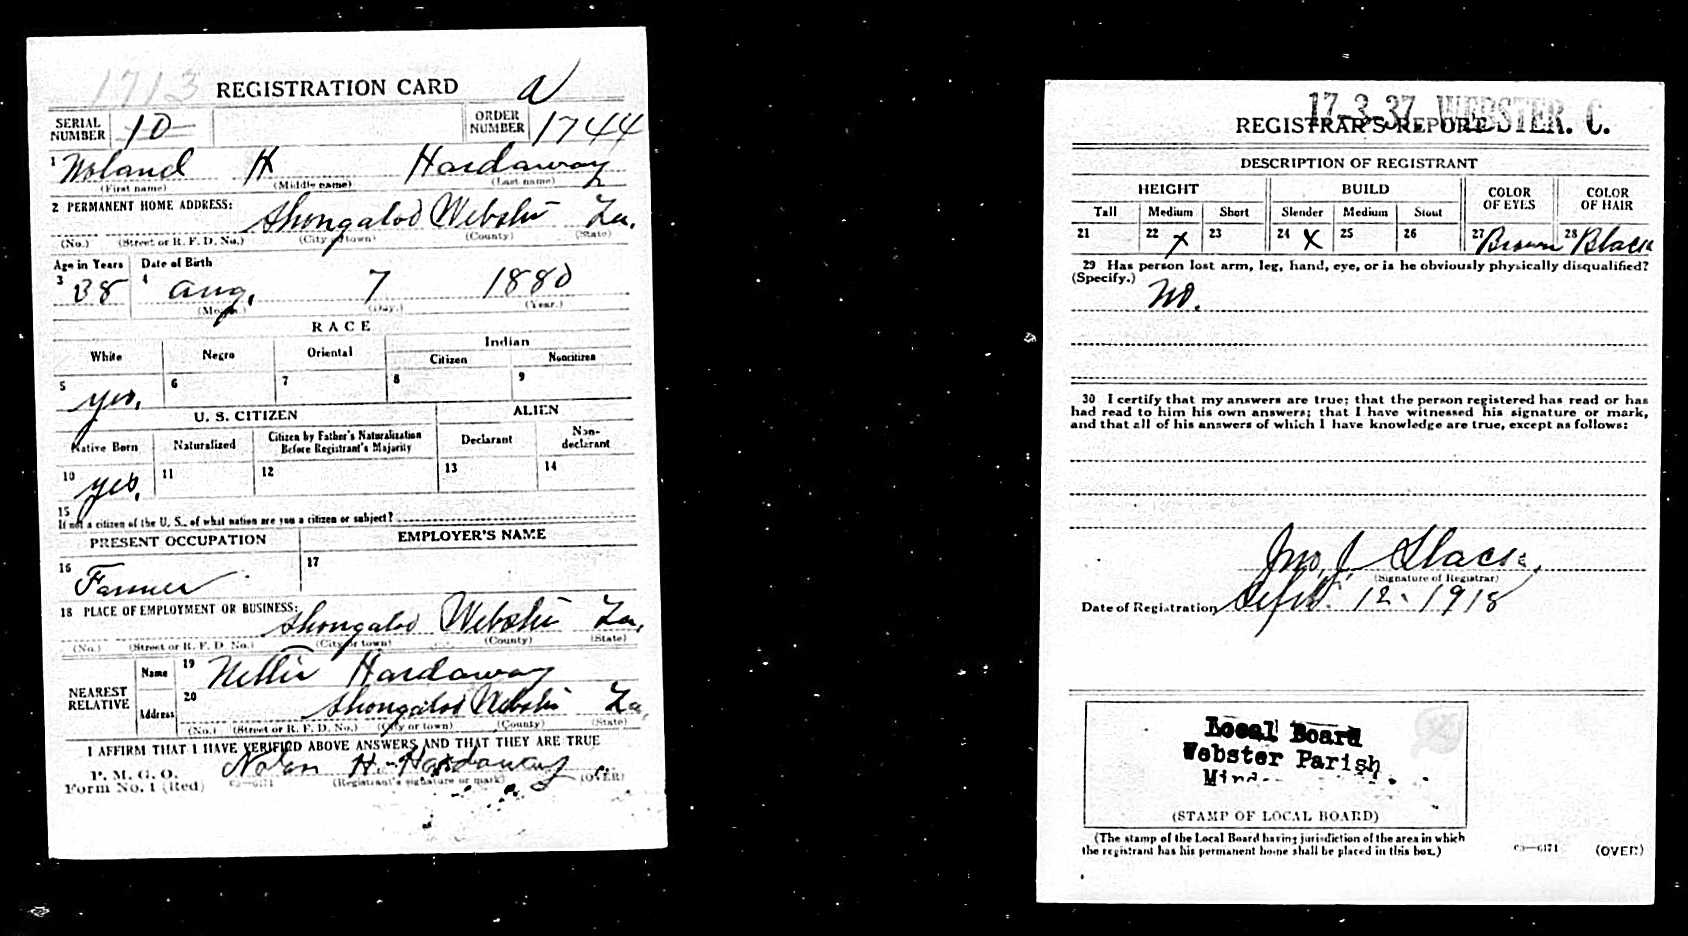 1713 REGISTRATION CARD
SERIAL NUMBER 10 ORDER NUMBER 1744
1 Noland H Hardaway
(First name) (Middle name) (Last name)
2 PERMANENT HOME ADDRESS: Shongaloo Webster La.
(No.) (Street or R. F. D. No.) (City or town) (County) (State)
Age in Years Date of Birth
3 38 4 Aug. 7 1880
(Month.) (Day.) (Year.)
RACE
White Negro Oriental Indian
Citizen Noncitizen
5 yes. 6 7 8 9
U. S. CITIZEN ALIEN
Native Born Naturalized Citizen by Father's Naturalization Before Registrant's Majority Declarant Non-declarant
10 yes. 11 12 13 14
15
If not a citizen of the U. S., of what nation are you a citizen or subject?
PRESENT OCCUPATION EMPLOYER'S NAME
16 Farmer 17
18 PLACE OF EMPLOYMENT OR BUSINESS:
Shongaloo Webster La.
(No.) (Street or R. F. D. No.) (City or town) (County) (State)
NEAREST RELATIVE Name 19 Nettie Hardaway
Address 20 Shongaloo Webster La.
(No.) (Street or R. F. D. No.) (City or town) (County) (State)
I AFFIRM THAT I HAVE VERIFIED ABOVE ANSWERS AND THAT THEY ARE TRUE
P. M. G. O.
Form No. 1 (Red) Nolan H. Hardaway
(Registrant's signature or mark) (OVER)
17-3-37. WEBSTER. C.
REGISTRAR'S REPORT
DESCRIPTION OF REGISTRANT
HEIGHT BUILD COLOR OF EYES COLOR OF HAIR
Tall Medium Short Slender Medium Stout
21 22 x 23 24 x 25 26 27 Brown 28 Black
29 Has person lost arm, leg, hand, eye, or is he obviously physically disqualified?
(Specify.) No.
30 I certify that my answers are true; that the person registered has read or has
had read to him his own answers; that I have witnessed his signature or mark,
and that all of his answers of which I have knowledge are true, except as follows:
Jno. J. Slack
(Signature of Registrar)
Date of Registration Sept. 12. 1918
Local Board
Webster Parish
(STAMP OF LOCAL BOARD)
(The stamp of the Local Board having jurisdiction of the area in which
the registrant has his permanent home shall be placed in this box.)
03—6171 (OVER)